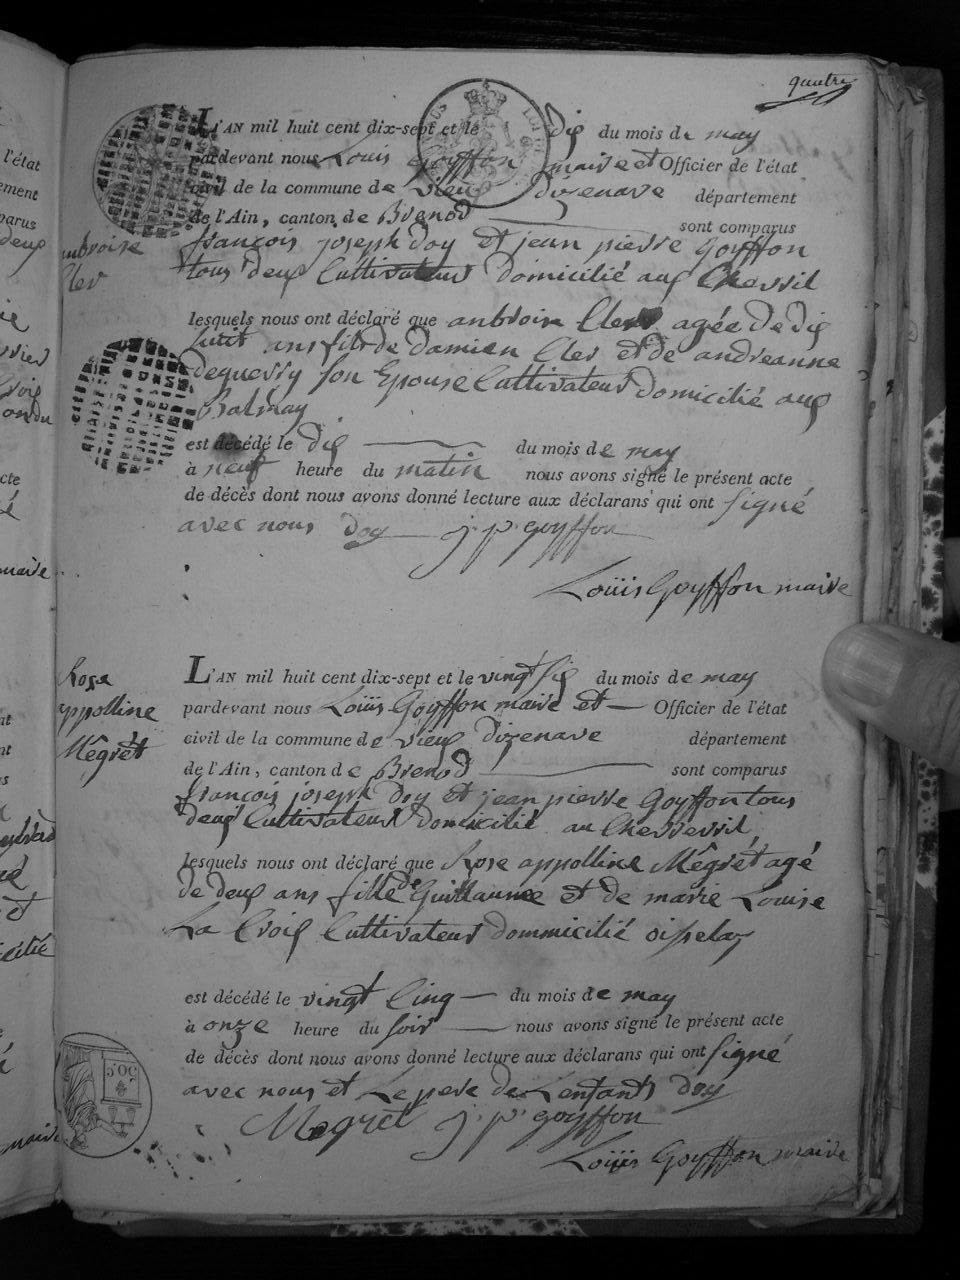 quatre
L'AN mil huit cent dix-sept et le dix du mois de may
pardevant nous Louis Goyffon maire et Officier de l'état
civil de la commune de vieux dizenave département
de l'Ain, canton de Brenod sont comparus
françois joseph doy et jean pierre Goyffon
tous deux Cultivateur domicilié aux
ambroise
Cler
lesquels nous ont déclaré que anbroise Cler agée de dix
huit ans fils de damien Cler et de andreanne
deguerry son Epouse Cultivateur domicilié aux
Balmay
est décédé le dix du mois de may
à neuf heure du matin nous avons signé le présent acte
de décès dont nous avons donné lecture aux déclarans qui ont signé
avec nous doy j. p. goyffon
Loüis Goyffon maire
Rose
appolline
Mêgrêt
L'AN mil huit cent dix-sept et le vingt six du mois de may
pardevant nous Loüis Goyffon maire et Officier de l'état
civil de la commune de vieux dizenave département
de l'Ain, canton de Brenod sont comparus
françois joseph doy et jean pierre Goyffon tous
deux Cultivateur domicilié au
lesquels nous ont déclaré que Rose appolline Mêgrêt agé
de deux ans fille de Guillaume et de marie Louise
La Croix Cultivateur dommicilié
est décédé le vingt Cinq du mois de may
à onze heure du soir nous avons signé le présent acte
de décès dont nous avons donné lecture aux déclarans qui ont signé
avec nous et Le pere de L'enfant doy
Megret j. p. goyffon
Loüis Goyffon maire